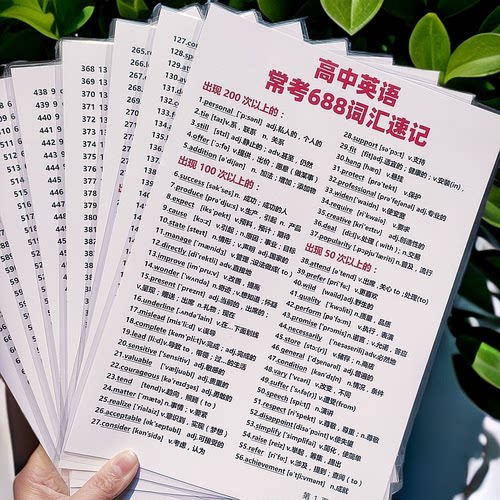 高中英语
常考688词汇速记
出现 200 次以上的：
1.personal ['pɜːsənl] adj.私人的，个人的
2.tie [taɪ]v.系，联系 n. 关系
3.still [stɪl] adj.静止的、adv.甚至，仍然
4.offer ['ɔːfə] v.提供，出价；愿意（做某事）
5.addition [ə'dɪʃən] n. 加法；增加；添加物
出现 100 次以上的：
6.success [sək'ses] n. 成功；成功的人
7.produce [prə'djuːs] v.生产，引起 n. 产品
8.expect [ɪks'pekt] v.预料，预计；期待
9.cause [kɔːz] v.引起 n.原因；事业；目标
10.state [steɪt] n. 情形，v.声明 adj.国家的
11.manage ['mænɪdʒ] v.管理；设法做成(to )
12.directly [dɪ'rektlɪ] adv.直接地
13.improve [ɪm'pruːv] v.改善，提高
14.wonder ['wʌndə] n.奇迹 v.想知道；怀疑
15.present ['preznt] adj.当前的，出席的；
v.呈现；赠送；出席 n.礼物；现在
16.underline [ˌʌndə'laɪn] v.在…下面划线
17.mislead [mɪs'liːd] v.误导
18.complete [kəm'pliːt]v.完成；adj.完成的
19.lead [liːd] v.导致to，带领；过…的生活
20.sensitive ['sensɪtɪv] adj.敏感的
21.valuable ['væljuəbl] adj.贵重的
22.courageous [kə'reɪdʒəs] adj.勇敢的
23.tend [tend]v.趋向，照顾（to ）
24.matter ['mætə] n.事情；v.要紧
25.realize ['rɪəlaɪz] v.意识到，实现（梦想）
26.acceptable [ək'septəbl] adj.可接受的
27.consider [kən'sɪdə] v.考虑，认为
28.support [sə'pɔːt] v.支持
29.fit [fɪt]adj.适宜的；健康的；v.安装(in,
30.hang [hæŋ] v.悬挂
31.protect [prə'tekt] v.保护
32.professional [prə'feʃənl] adj.专业的
33.widen ['waɪdn] v.使变宽
34.require [rɪ'kwaɪə] v.要求
35.creative [kriː'eɪtɪv] adj.创造性的
36.deal [diːl] v.处理（with ）；n.交易
37.popularity [ˌpɒpju'lærɪtɪ] n.普及，流行
出现 50 次以上的：
38.attend [ə'tend] v.出席；关心 to ;处理(to)
39.prefer [prɪ'fɜː] v.更喜欢
40.wild [waɪld]adj.野生的
41.quality ['kwɒlɪtɪ] n.质量，品质
42.perform [pə'fɔːm] v.执行，表演
43.promise ['prɒmɪs] n.诺言；v.允诺，答应
44.necessarily ['nesəserɪlɪ] adv.必然地
45.store [stɔː(r)] v.储存；n.商店
46.general ['dʒenərəl] adj.普遍的
47.condition [kən'dɪʃn] n.情况，条件
48.vary ['veərɪ] v.改变，不同
49.suffer ['sʌfə(r)] v.遭受(from)
50.speech [spiːtʃ] n.演讲
51.respect [rɪ'spekt] v.尊敬，尊重；n.尊敬
52.disappoint [dɪsə'pɔɪnt] v.使失望
53.simplify ['sɪmplɪfaɪ] v.简化，使简单
54.raise [reɪz] v.举起，筹集，提出
55.refer [rɪ'fɜː] v.涉及，提到；查阅（to ）
56.achievement [ə'tʃiːvmənt] n.成就